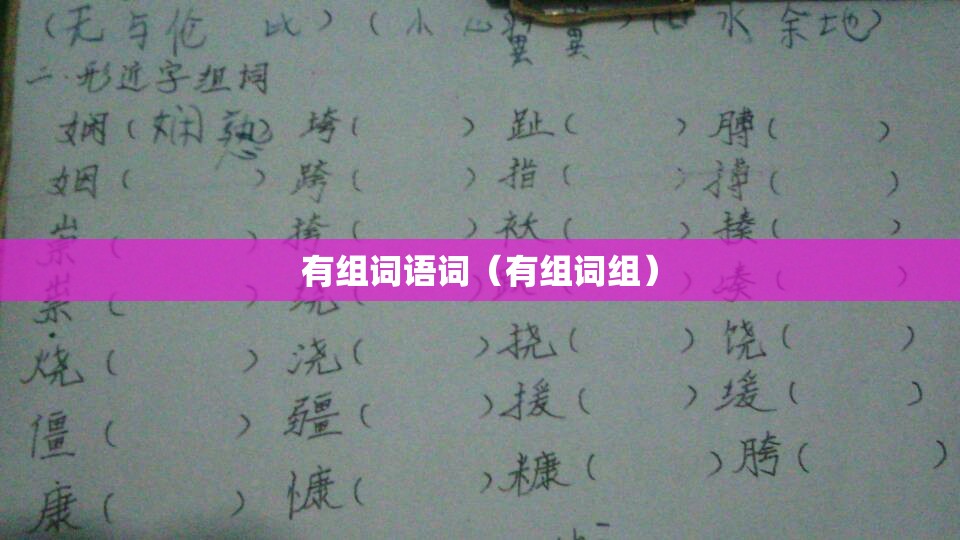 （无与伦比）（小心翼翼）（ 水 余地）
二.形近字组词
娴（娴熟）垮（ ）趾（ ）膊（ ）
姻（ ）跨（ ）指（ ）搏（ ）
崇（ ）挎（ ）袄（ ）揍（ ）
有组词语词（有组词组）
祟（ ）绕（ ） （ ）嗪（ ）
烧（ ）浇（ ）挠（ ）饶（ ）
僵（ ）疆（ ）援（ ）缓（ ）
康（ ）慷（ ）糠（ ）胯（ ）